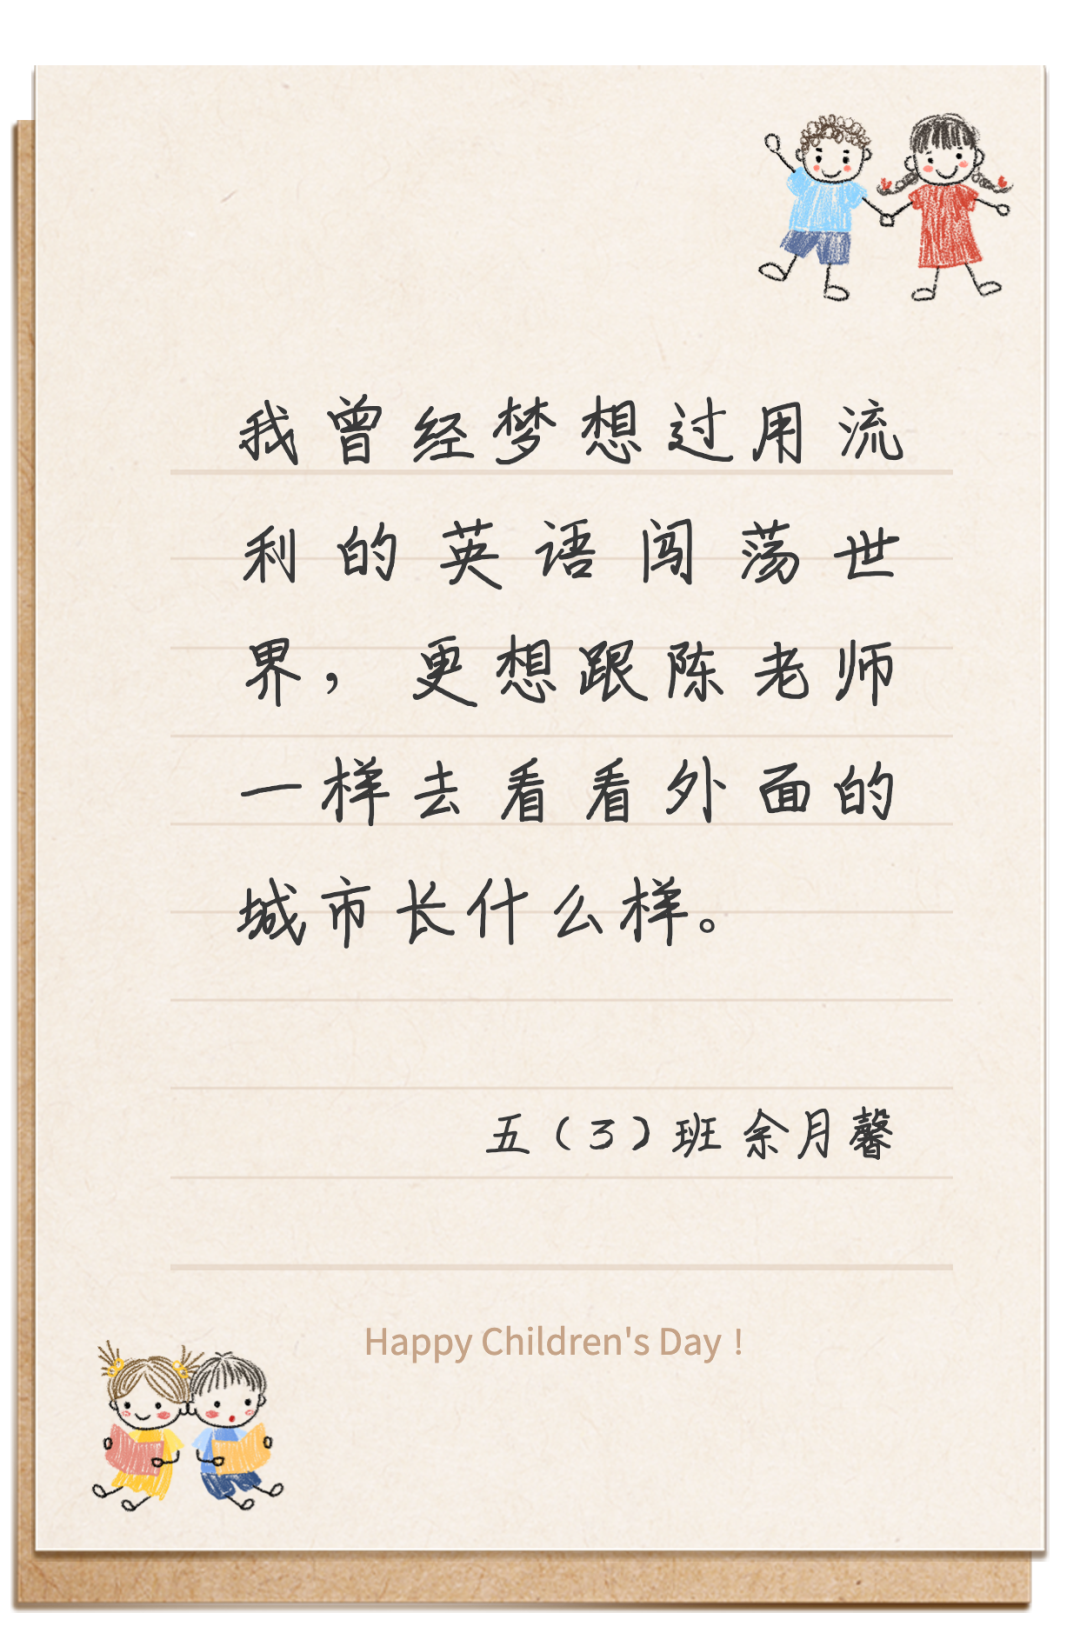 我曾经梦想过用流
利的英语闯荡世
界，更想跟陈老师
一样去看看外面的
城市长什么样。
五（3）班 余月馨
Happy Children's Day！